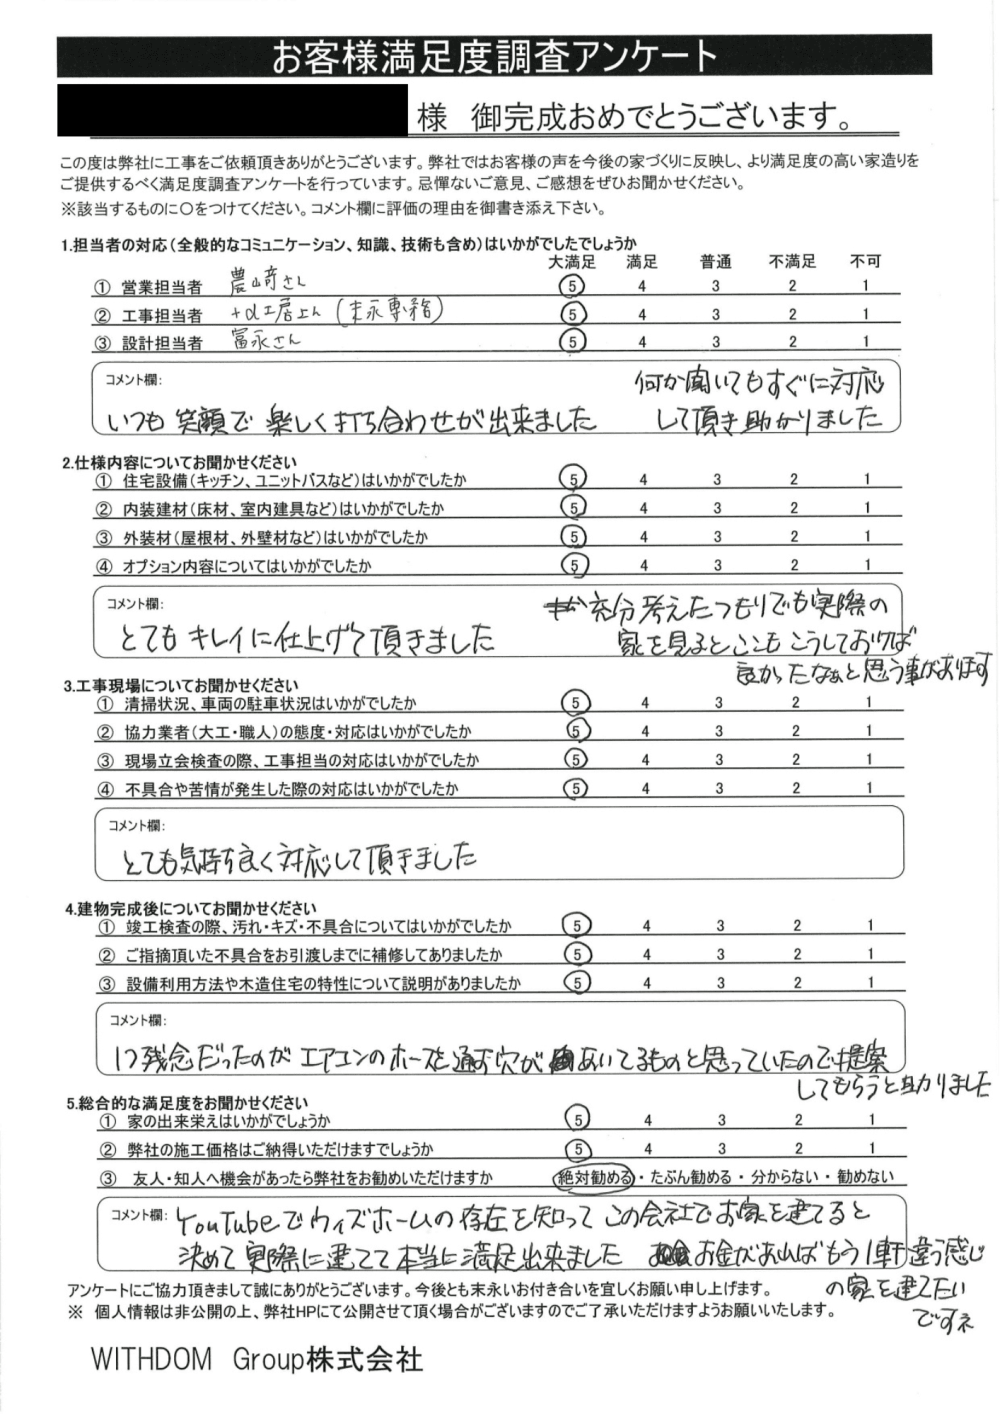 お客様満足度調査アンケート
様 御完成おめでとうございます。
この度は弊社に工事をご依頼頂きありがとうございます。弊社ではお客様の声を今後の家づくりに反映し、より満足度の高い家造りを
ご提供するべく満足度調査アンケートを行っています。忌憚ないご意見、ご感想をぜひお聞かせください。
※該当するものに○をつけてください。コメント欄に評価の理由を御書き添え下さい。
1.担当者の対応(全般的なコミュニケーション、知識、技術も含め)はいかがでしたでしょうか
大満足 満足 普通 不満足 不可
① 営業担当者 農﨑さん 5 4 3 2 1
② 工事担当者 +α工居さん (末永専務) 5 4 3 2 1
③ 設計担当者 冨永さん 5 4 3 2 1
コメント欄:
いつも笑顔で楽しく打ち合わせが出来ました
何か聞いてもすぐに対応
して頂き助かりました
2.仕様内容についてお聞かせください
① 住宅設備(キッチン、ユニットバスなど)はいかがでしたか 5 4 3 2 1
② 内装建材(床材、室内建具など)はいかがでしたか 5 4 3 2 1
③ 外装材(屋根材、外壁材など)はいかがでしたか 5 4 3 2 1
④ オプション内容についてはいかがでしたか 5 4 3 2 1
コメント欄:
とてもキレイに仕上げて頂きました
充分考えたつもりでも実際の
家を見るとここもこうしておけば
良かったなぁと思う事があります
3.工事現場についてお聞かせください
① 清掃状況、車両の駐車状況はいかがでしたか 5 4 3 2 1
② 協力業者(大工・職人)の態度・対応はいかがでしたか 5 4 3 2 1
③ 現場立会検査の際、工事担当の対応はいかがでしたか 5 4 3 2 1
④ 不具合や苦情が発生した際の対応はいかがでしたか 5 4 3 2 1
コメント欄:
とても気持ち良く対応して頂きました
4.建物完成後についてお聞かせください
① 竣工検査の際、汚れ・キズ・不具合についてはいかがでしたか 5 4 3 2 1
② ご指摘頂いた不具合をお引渡しまでに補修してありましたか 5 4 3 2 1
③ 設備利用方法や木造住宅の特性について説明がありましたか 5 4 3 2 1
コメント欄:
1つ残念だったのがエアコンのホースを通す穴があいてるものと思っていたので提案
してもらうと助かりました
5.総合的な満足度をお聞かせください
① 家の出来栄えはいかがでしょうか 5 4 3 2 1
② 弊社の施工価格はご納得いただけますでしょうか 5 4 3 2 1
③ 友人・知人へ機会があったら弊社をお勧めいただけますか 絶対勧める・たぶん勧める・分からない・勧めない
コメント欄: YouTubeでウィズホームの存在を知ってこの会社でお家を建てると
決めて実際に建てて本当に満足出来ました お金があればもう1軒違う感じ
の家を建てたい
ですネ
アンケートにご協力頂きまして誠にありがとうございます。今後とも末永いお付き合いを宜しくお願い申し上げます。
※ 個人情報は非公開の上、弊社HPにて公開させて頂く場合がございますのでご了承いただけますようお願いいたします。
WITHDOM Group株式会社